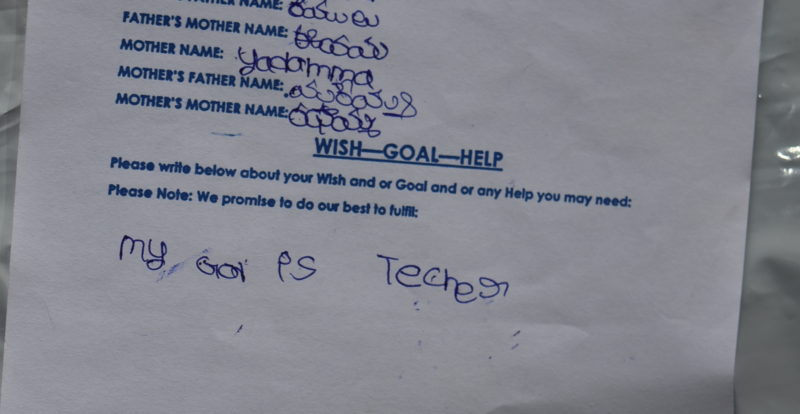 FATHER NAME: రాములు
FATHER'S MOTHER NAME:
MOTHER NAME: yadamma
MOTHER'S FATHER NAME:
MOTHER'S MOTHER NAME:
WISH—GOAL—HELP
Please write below about your Wish and or Goal and or any Help you may need:
Please Note: We promise to do our best to fulfil:
my Gol PS Techer